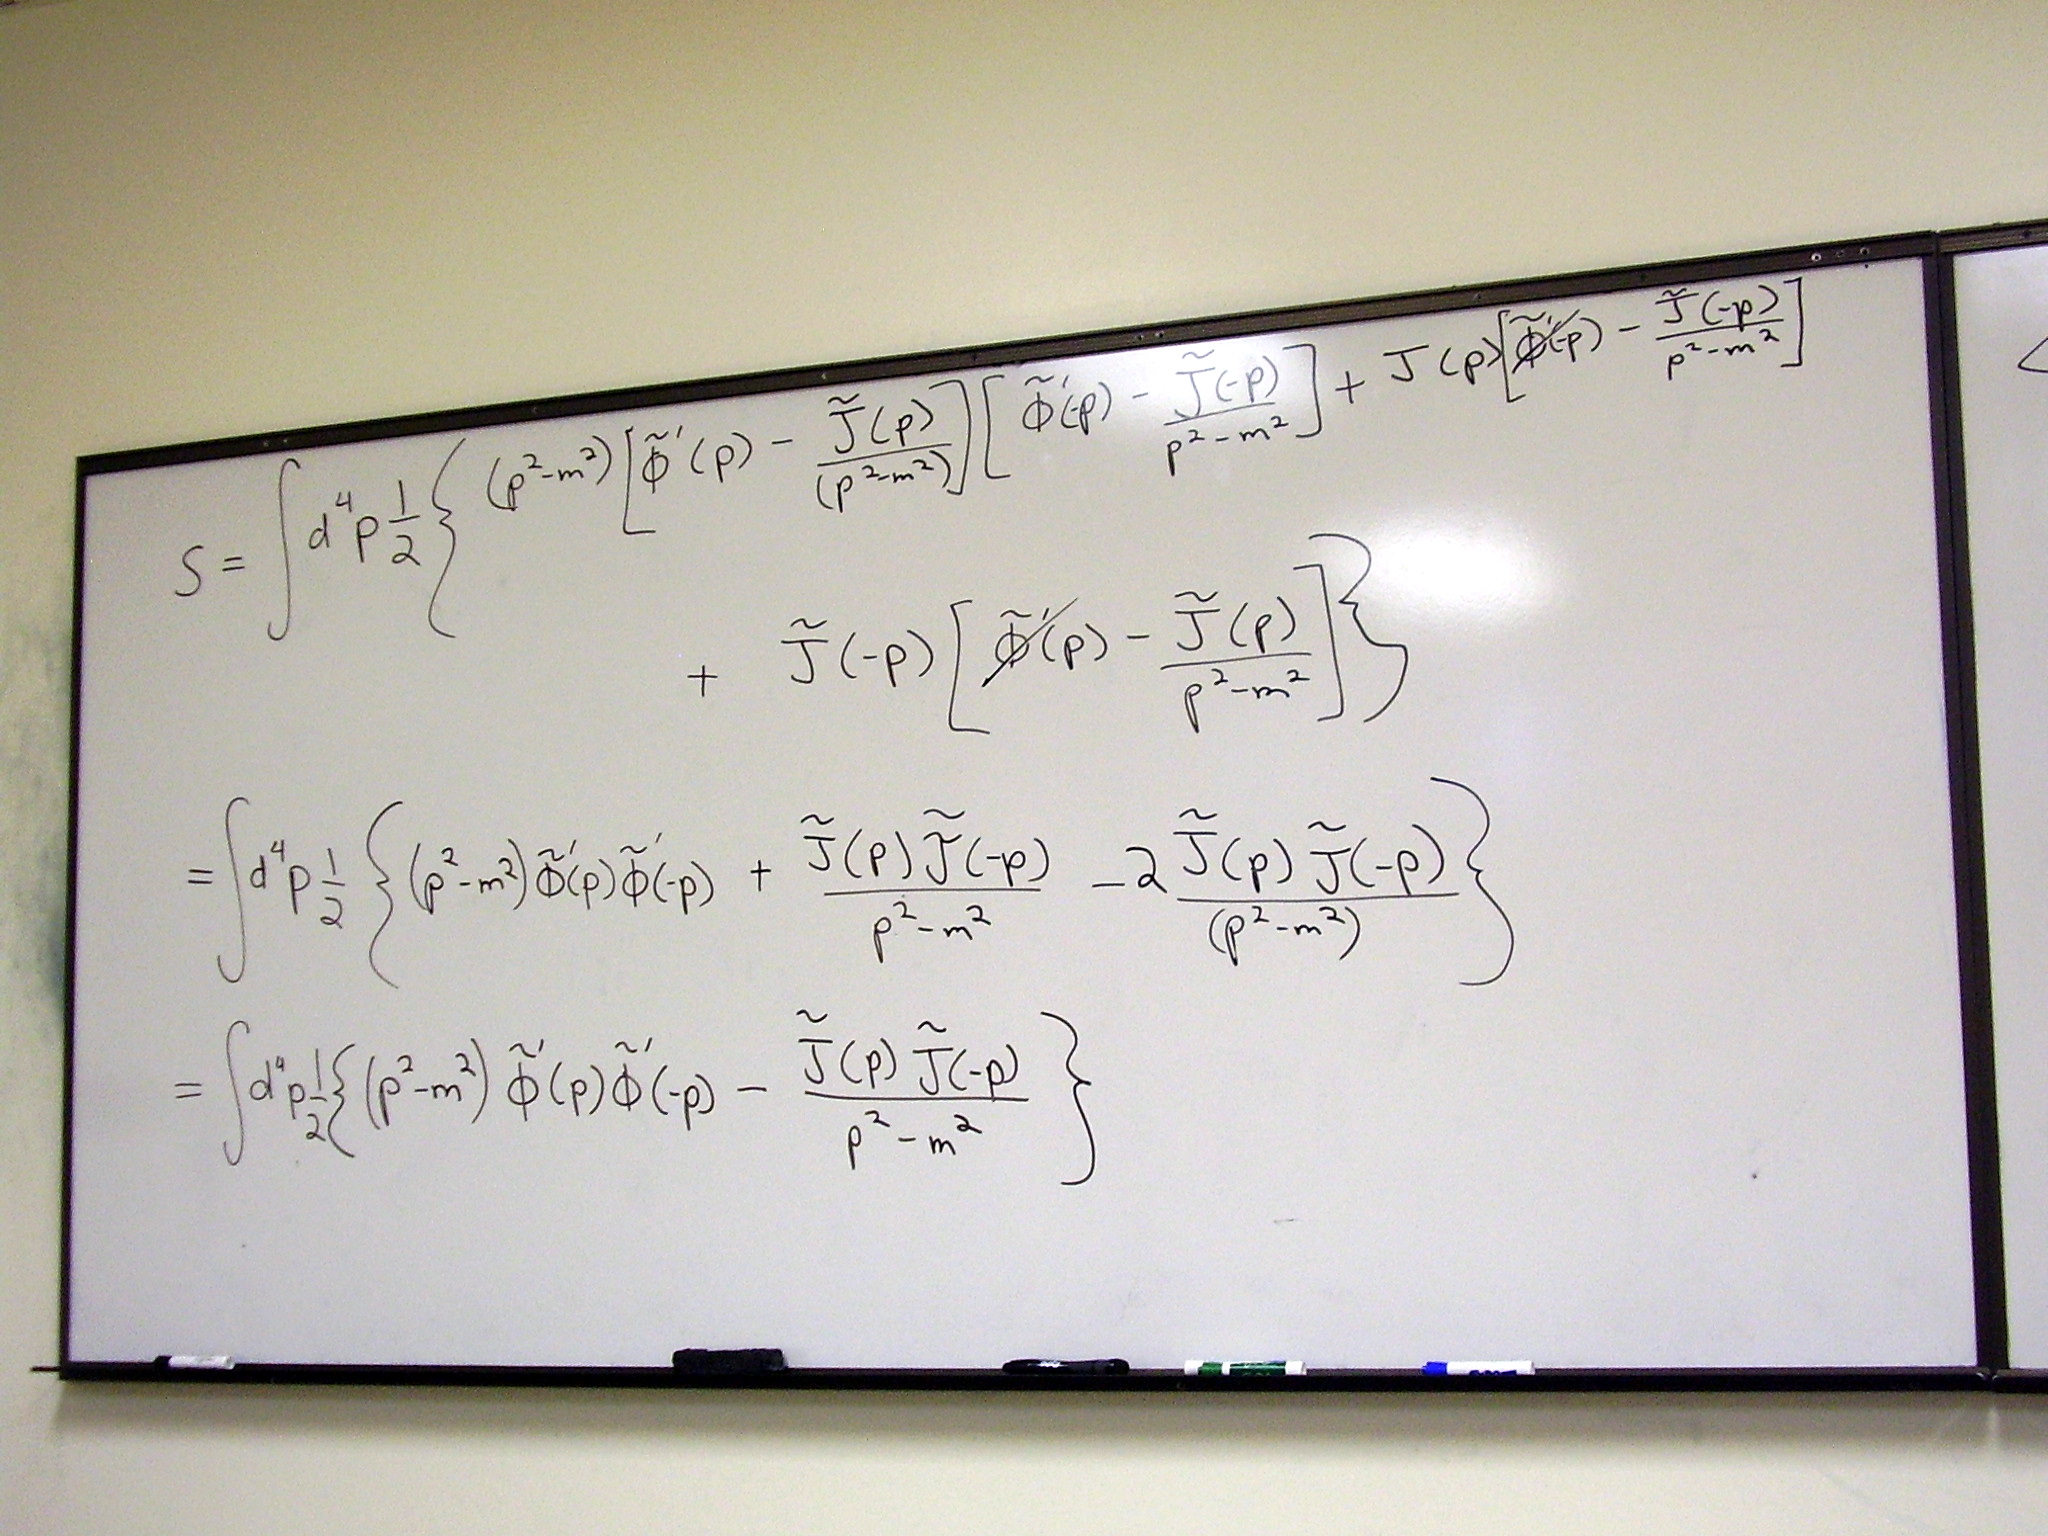 S = ∫ d⁴p 1/2 { (p²-m²) [ Φ̃'(p) - J̃(p)/(p²-m²) ] [ Φ̃'(-p) - J̃(-p)/p²-m² ] + J(p) [ Φ̃'(-p) - J̃(-p)/p²-m² ]
+ J̃(-p) [ Φ̃'(p) - J̃(p)/p²-m² ] }
= ∫ d⁴p 1/2 { (p²-m²) Φ̃'(p) Φ̃'(-p) + J̃(p) J̃(-p)/p²-m² - 2 J̃(p) J̃(-p)/(p²-m²) }
= ∫ d⁴p 1/2 { (p²-m²) Φ̃'(p) Φ̃'(-p) - J̃(p) J̃(-p)/p²-m² }